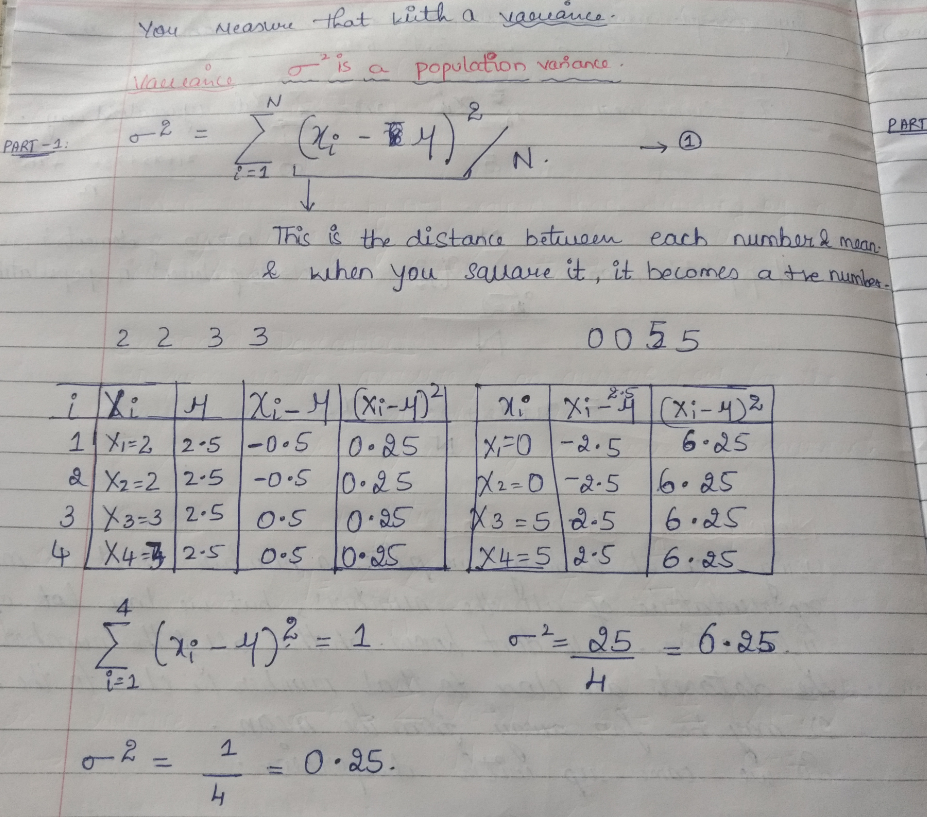 You measure that with a variance.
Variance σ² is a population variance.
PART-1: σ² = N Σ i=1 (xi - μ)² / N. → ①
PART
↓
This is the distance between each number & mean.
& when you square it, it becomes a +ve number.
2 2 3 3 0 0 5 5
i Xi μ Xi - μ (xi-μ)² xi Xi - μ 2.5 (xi-μ)²
1 X1=2 2.5 -0.5 0.25 X1=0 -2.5 6.25
2 X2=2 2.5 -0.5 0.25 X2=0 -2.5 6.25
3 X3=3 2.5 0.5 0.25 X3=5 2.5 6.25
4 X4=3 2.5 0.5 0.25 X4=5 2.5 6.25
4 Σ i=1 (xi - μ)² = 1 σ² = 25/4 = 6.25
σ² = 1/4 = 0.25.